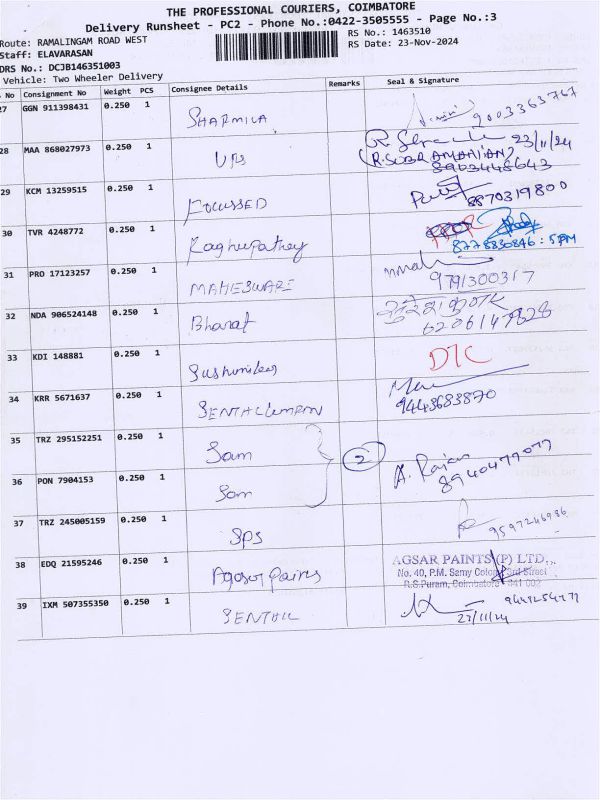 THE PROFESSIONAL COURIERS, COIMBATORE
Delivery Runsheet - PC2 - Phone No.:0422-3505555 - Page No.:3
Route: RAMALINGAM ROAD WEST RS No.: 1463510
Staff: ELAVARASAN RS Date: 23-Nov-2024
DRS No.: DCJB146351003
Vehicle: Two Wheeler Delivery
No Consignment No Weight PCS Consignee Details Remarks Seal & Signature
27 GGN 911398431 0.250 1 SHARMILA 9003363767
28 MAA 868027973 0.250 1 UPS 23/11/24
8903448643
29 KCM 13259515 0.250 1 FOCUSSED 8870319800
30 TVR 4248772 0.250 1 Raghupathy
8778830846 : 5 PM
31 PRO 17123257 0.250 1 MAHESWARI
32 NDA 906524148 0.250 1 Bharat
33 KDI 148881 0.250 1 DTC
34 KRR 5671637 0.250 1 9443683870
35 TRZ 295152251 0.250 1 Sam 2
A. Rajan
36 PON 7904153 0.250 1 Sam 8940479077
37 TRZ 245005159 0.250 1 SPS 9597246936
38 EDQ 21595246 0.250 1 AGSAR PAINTS (P) LTD.,
No. 40, P.M. Samy Colony 3rd Street
R.S.Puram, Coimbatore - 641 002
39 IXM 507355350 0.250 1 SENTHIL
23/11/24